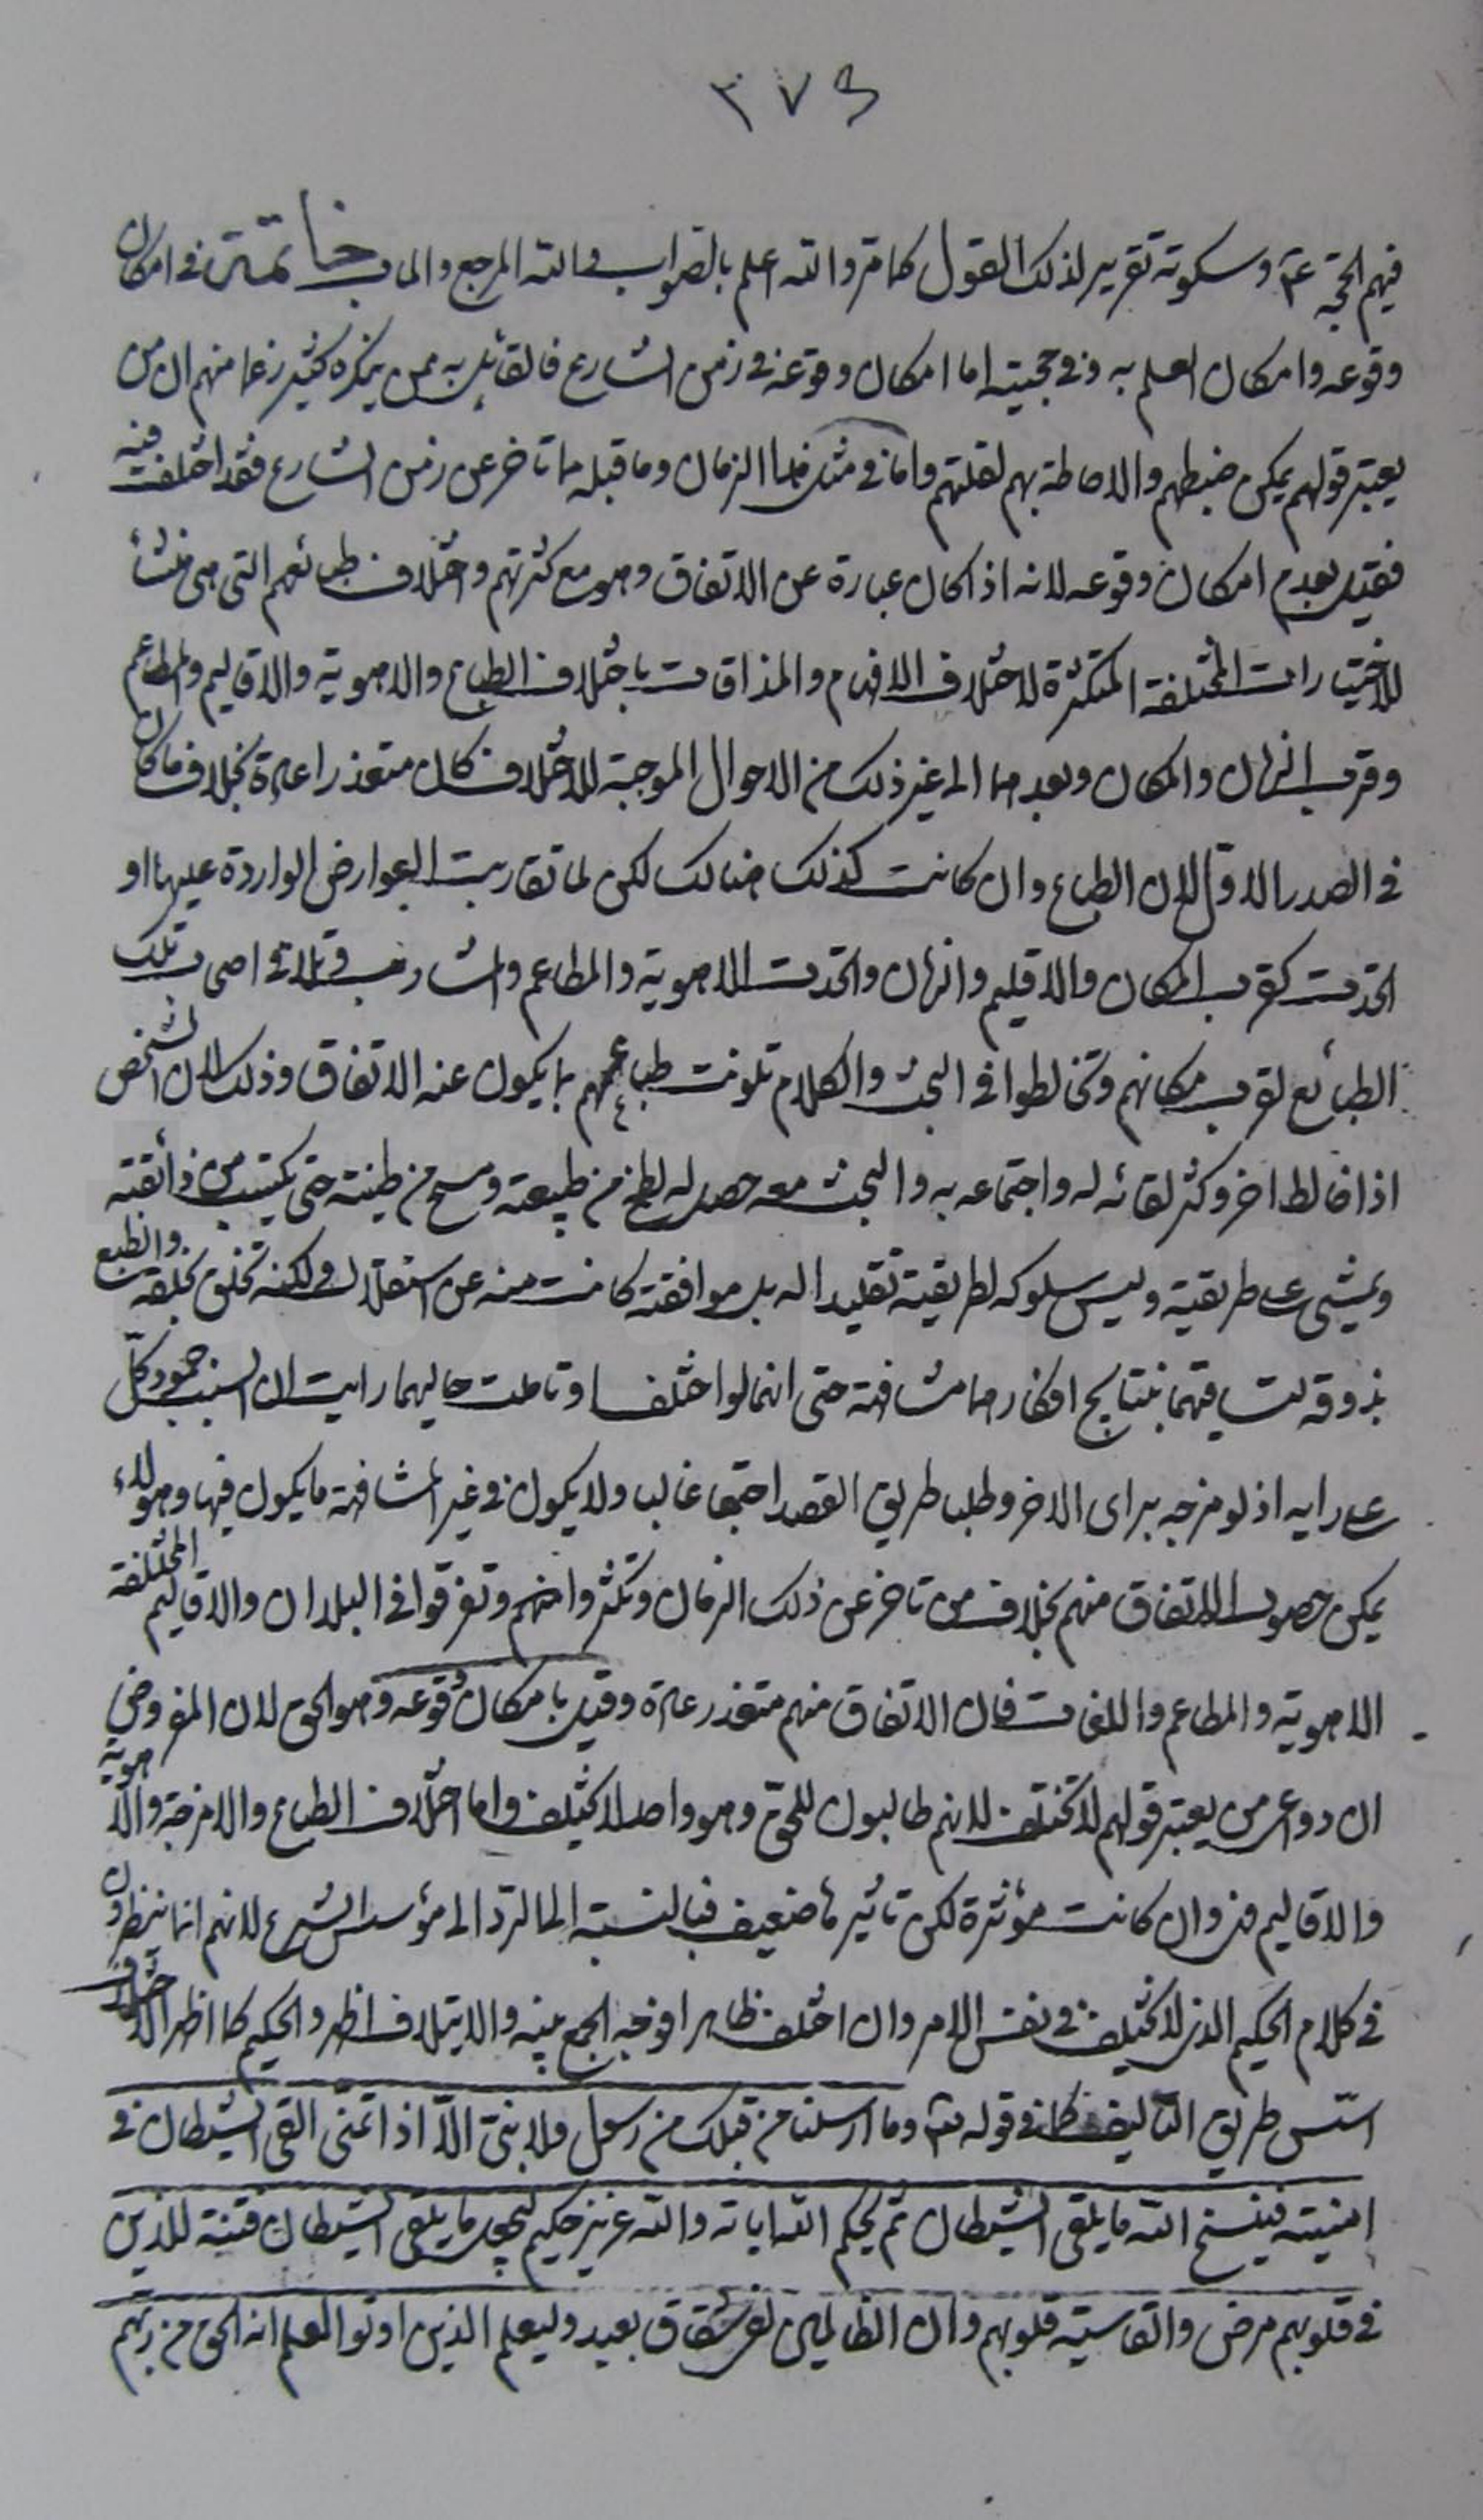 ٣٧٤
فيهم الحجة ع٣ وسكوته تقرير لذلك القول كما مر والله اعلم بالصواب والله المرجع والماب خاتمة في امكان
وقوعه وامكان العلم به وفي حجيته اما امكان وقوعه في زمن الشارع فالقائل به ممن ينكره كثير زعما منهم ان من
يعتبر قولهم يمكن ضبطهم والاحاطة بهم لقلتهم واما في مثل هذا الزمان وما قبله مما تاخر عن زمن الشارع فقد اختلف فيه
فقيل بعدم امكان وقوعه لانه اذا كان عبارة عن الاتفاق وهو مع كثرتهم واختلاف طبائعهم التي هي منشأ
للاختيارات المختلفة المتكثرة لاختلاف الافهام والمذاقات باختلاف الطباع والاهوية والاقاليم والمطاعم
وقرب الزمان والمكان وبعدهما الى غير ذلك من الاحوال الموجبة للاختلاف كان متعذرا عادة بخلاف ما كان
في الصدر الاول لان الطباع وان كانت كذلك هنالك لكن لما تقاربت العوارض الواردة عليها او
اتحدت كقرب المكان والاقليم والزمان واتحدت الاهوية والمطاعم والمشارب وتلاقى اصحاب تلك
الطبائع لقرب مكانهم وتخالطوا في البحث والكلام تلونت طباعهم بما يكون عنه الاتفاق وذلك لان الشخص
اذا خالط اخر وكثر لقائه له واجتماعه به والبحث معه حصل له لطخ من طبيعته ومسح من طينته حتى يكتسب من ذائقته
ويمشي على طريقته وليس سلوكه لطريقته تقليدا له بل موافقته كانت منه عن استقلال ولكنه تخلق بخلقه وانطبع
بذوقه لتساقيهما نتايج افكارهما مشافهة حتى انهما لو اختلفا وتاملت حاليهما رايت ان السبب جمود كل
على رايه اذ لو مزجه براى الاخر وطلب طريق القصد اجتمعا غالبا ولا يكون في غير المشافهة ما يكون فيها وهولاء
يمكن حصول الاتفاق منهم بخلاف من تاخر عن ذلك الزمان وتكثروا منهم وتفرقوا في البلدان والاقاليم المختلفة
الاهوية والمطاعم واللغات فان الاتفاق منهم متعذر عادة وقيل بامكان وقوعه وهو الحق لان المفروض
ان دواعى من يعتبر قولهم لا تختلف لانهم طالبون للحق وهو واحد لا يختلف واما اختلاف الطباع والامزجة والاهوية
والاقاليم فهى وان كانت مؤثرة لكن تاثيرها ضعيف فبالنسبة الى الرد الى مؤسس الشرع لانهم انما ينظرون
في كلام الحكيم الذى لا يختلف في نفس الامر وان اختلف ظاهرا فوجه الجمع بينه والايتلاف اظهر والحكيم كما اظهر الاختلاف
اسس طريق التاليف كما في قوله تعالى وما ارسلنا من قبلك من رسول ولا نبي الا اذا تمنى القى الشيطان في
امنيته فينسخ الله ما يلقى الشيطان ثم يحكم الله اياته والله عزيز حكيم ليجعل ما يلقى الشيطان فتنة للذين
في قلوبهم مرض والقاسية قلوبهم وان الظالمين لفى شقاق بعيد وليعلم الذين اوتوا العلم انه الحق من ربهم